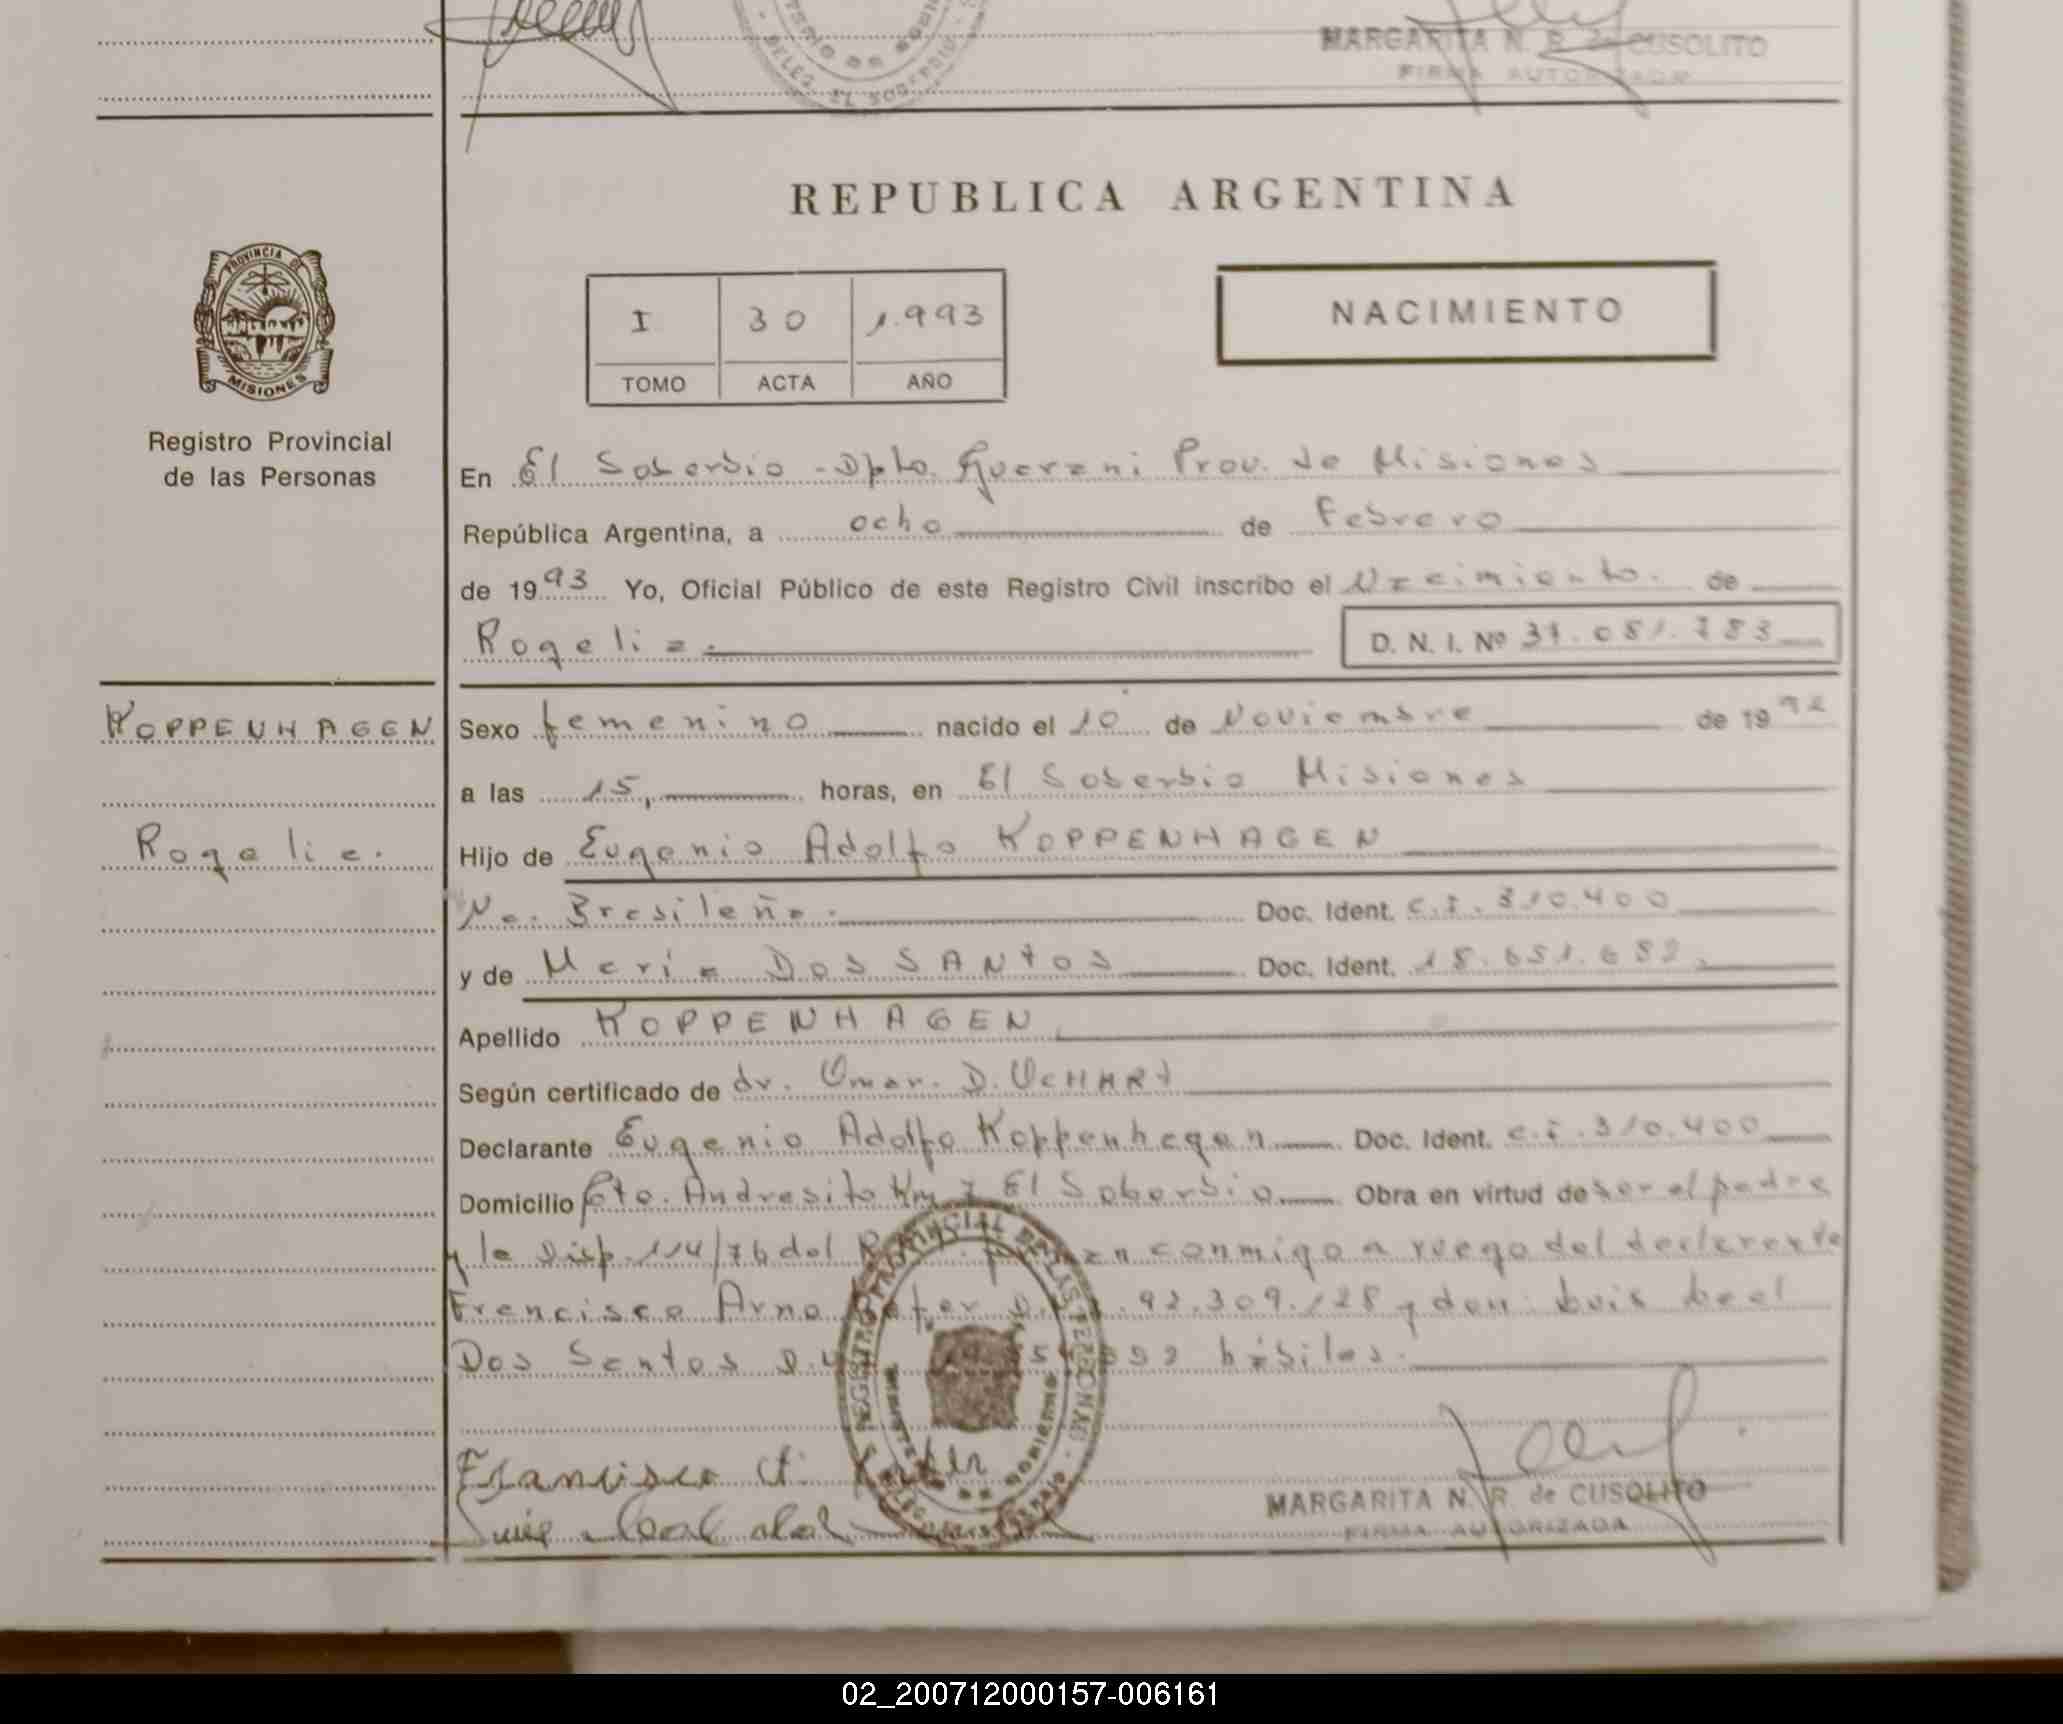 MARGARITA N. R. de CUSOLITO
FIRMA AUTORIZADA
DELEG. EL SOBERBIO
REPUBLICA ARGENTINA
PROVINCIA DE
MISIONES
I 30 1.993
TOMO ACTA AÑO
NACIMIENTO
Registro Provincial
de las Personas
En El Soberbio - Dpto. Guarani Prov. de Misiones
República Argentina, a ocho de Febrero
de 1993 Yo, Oficial Público de este Registro Civil inscribo el Nacimiento. de
Rogelia. D. N. I. Nº 37.081.783
KOPPENHAGEN
Rogelia.
Sexo femenino nacido el 10 de Noviembre de 1992
a las 15, horas, en El Soberbio Misiones
Hijo de Eugenio Adolfo KOPPENHAGEN
Na. Brasileña. Doc. Ident. C.I. 310.400
y de Maria DOS SANTOS Doc. Ident. 18.651.682.
Apellido KOPPENHAGEN
Según certificado de dr. Omar. D. UCHART
Declarante Eugenio Adolfo Koppenhagen Doc. Ident. C.I. 310.400
Domicilio Pto. Andresito Km 7 El Soberbio Obra en virtud de ser el padre
y la Disp. 114/76 del conmigo a ruego del declarante
Francisco Arno 92.309.128 y don: Luis Leal
Dos Santos habiles.
REGISTRO PROVINCIAL DE LAS PERSONAS
Francisco A.
Luis Leal
MARGARITA N. R. de CUSOLITO
FIRMA AUTORIZADA
02_200712000157-006161